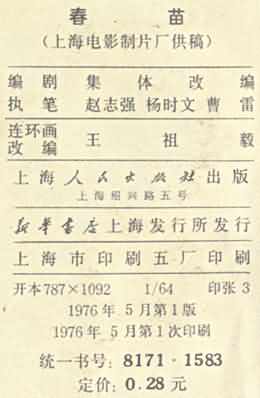 春苗
(上海电影制片厂供稿)
编剧 集体改编
执笔 赵志强 杨时文 曹雷
连环画改编 王祖毅
上海人民出版社出版
上海绍兴路五号
新华书店上海发行所发行
上海市印刷五厂印刷
开本787×1092 1/64 印张3
1976年5月第1版
1976年5月第1次印刷
统一书号: 8171·1583
定价: 0.28元